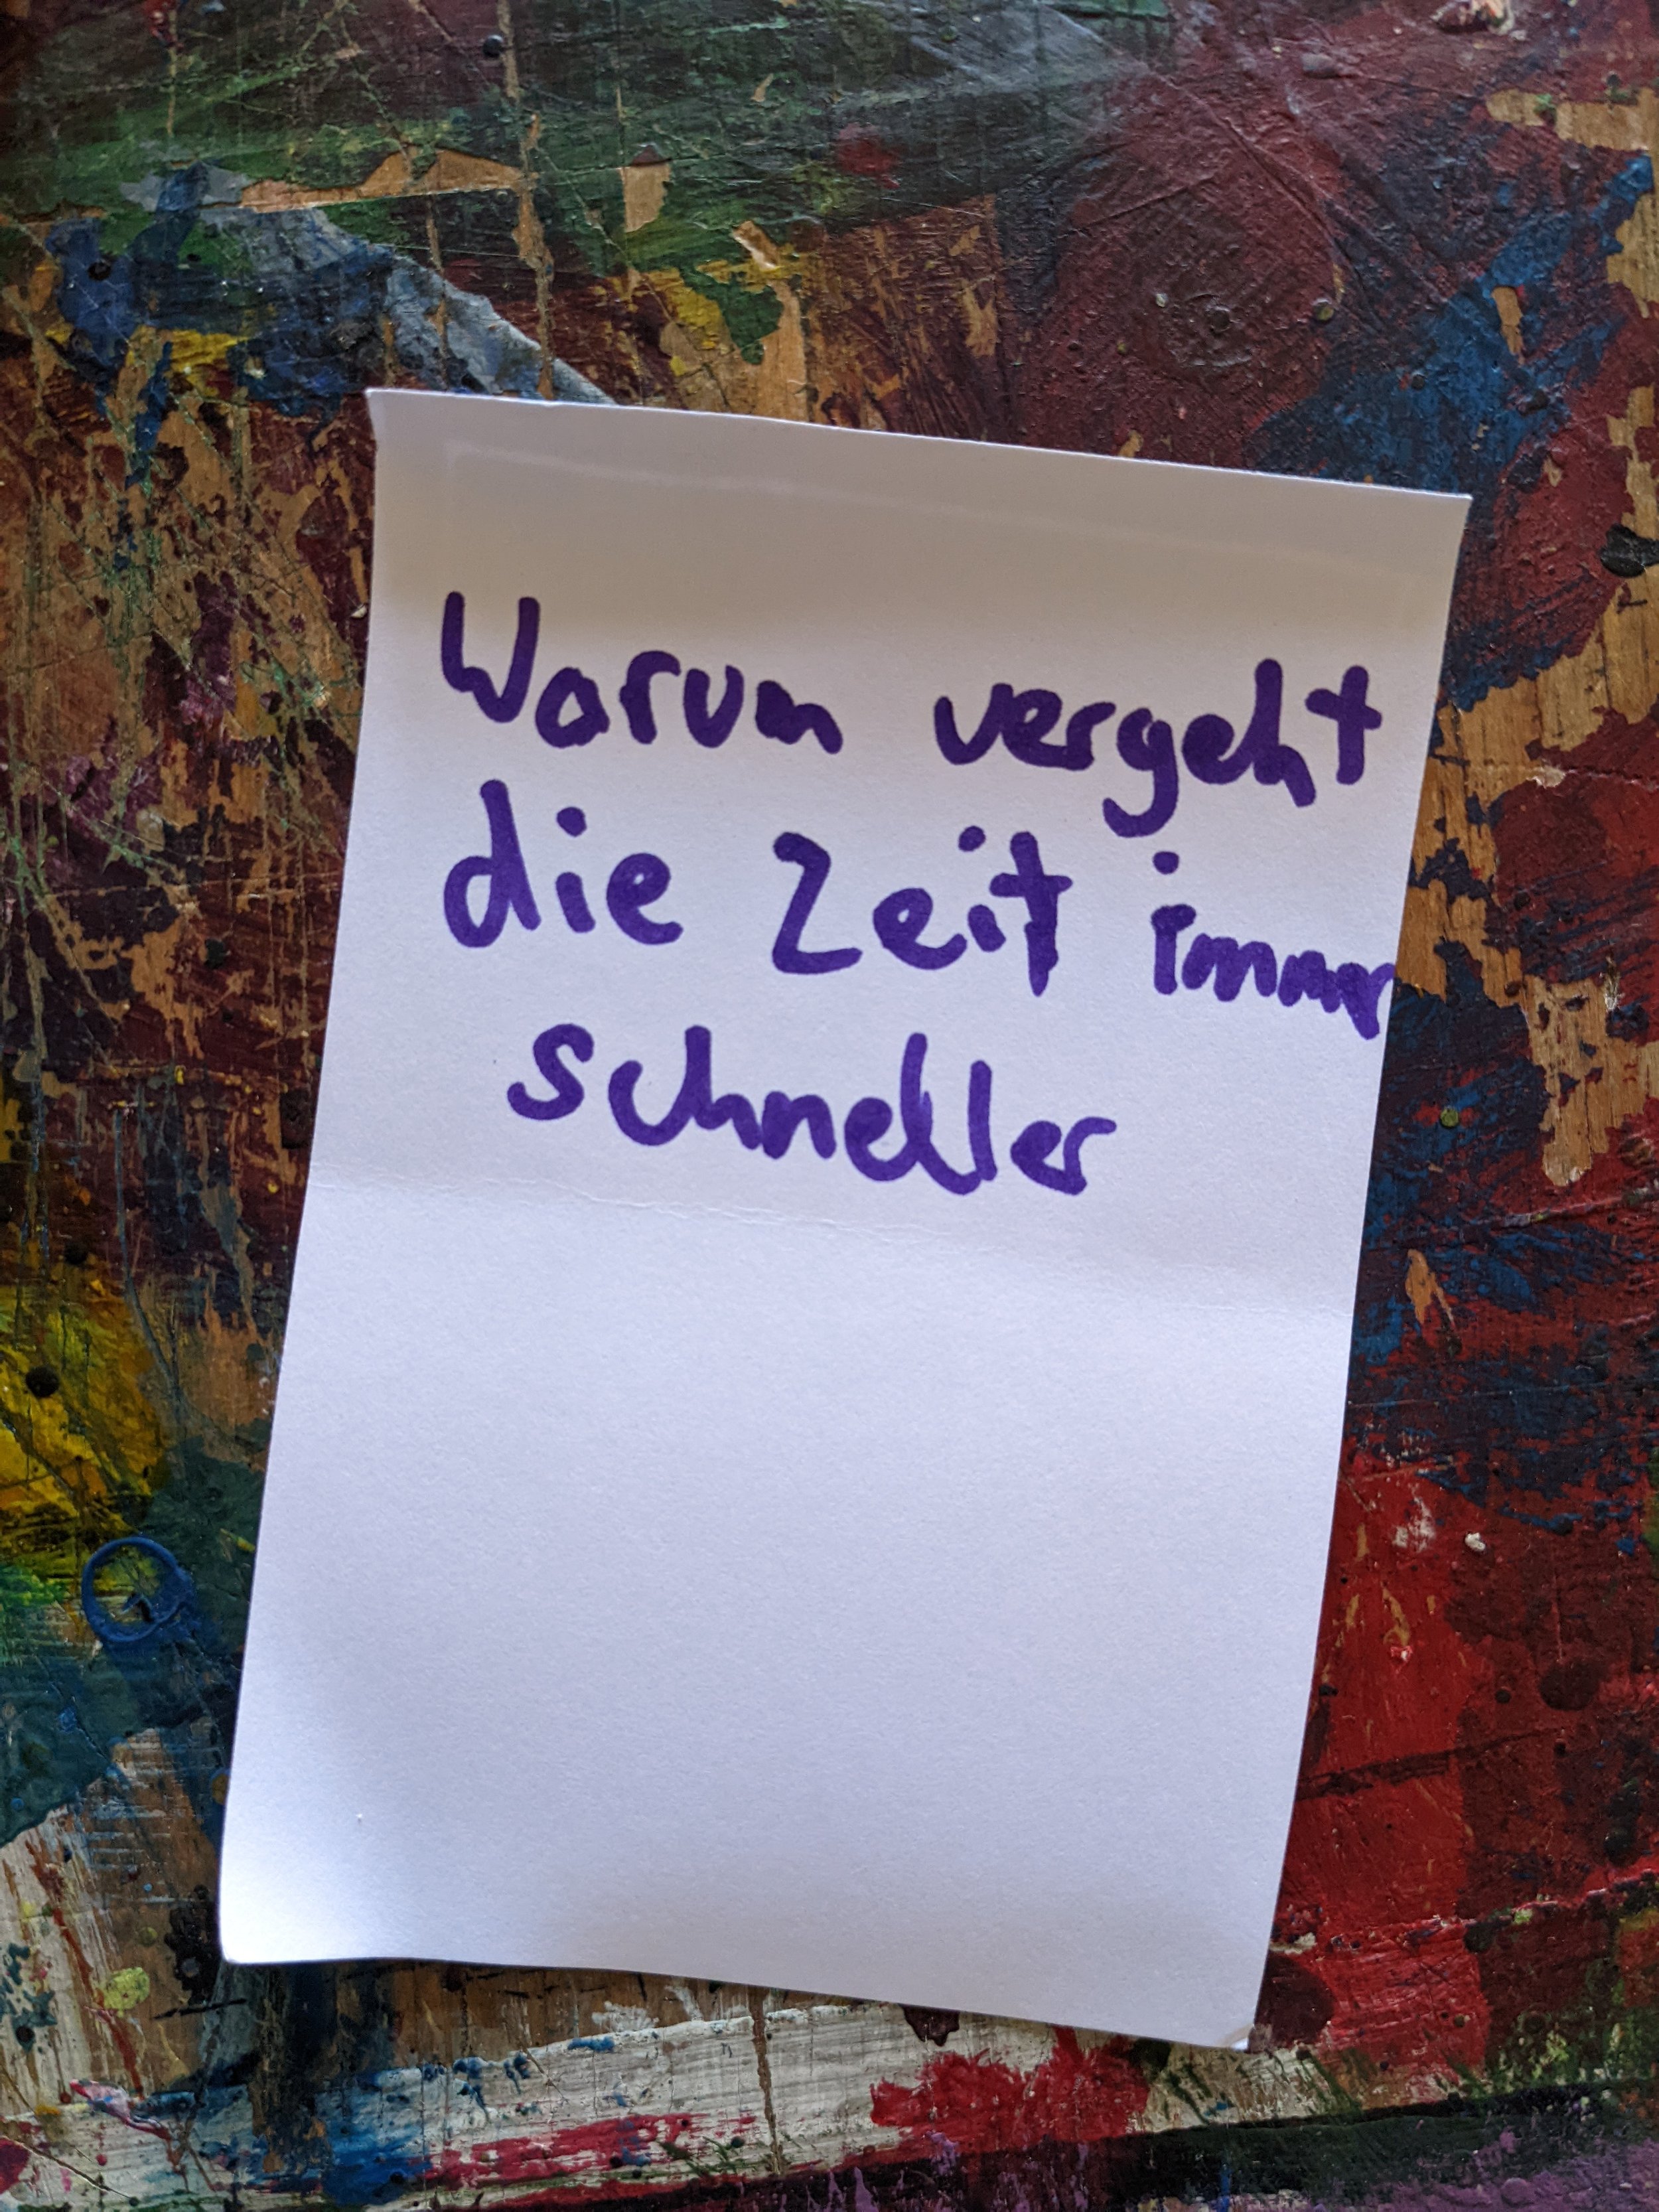 Warum vergeht
die Zeit immer
schneller